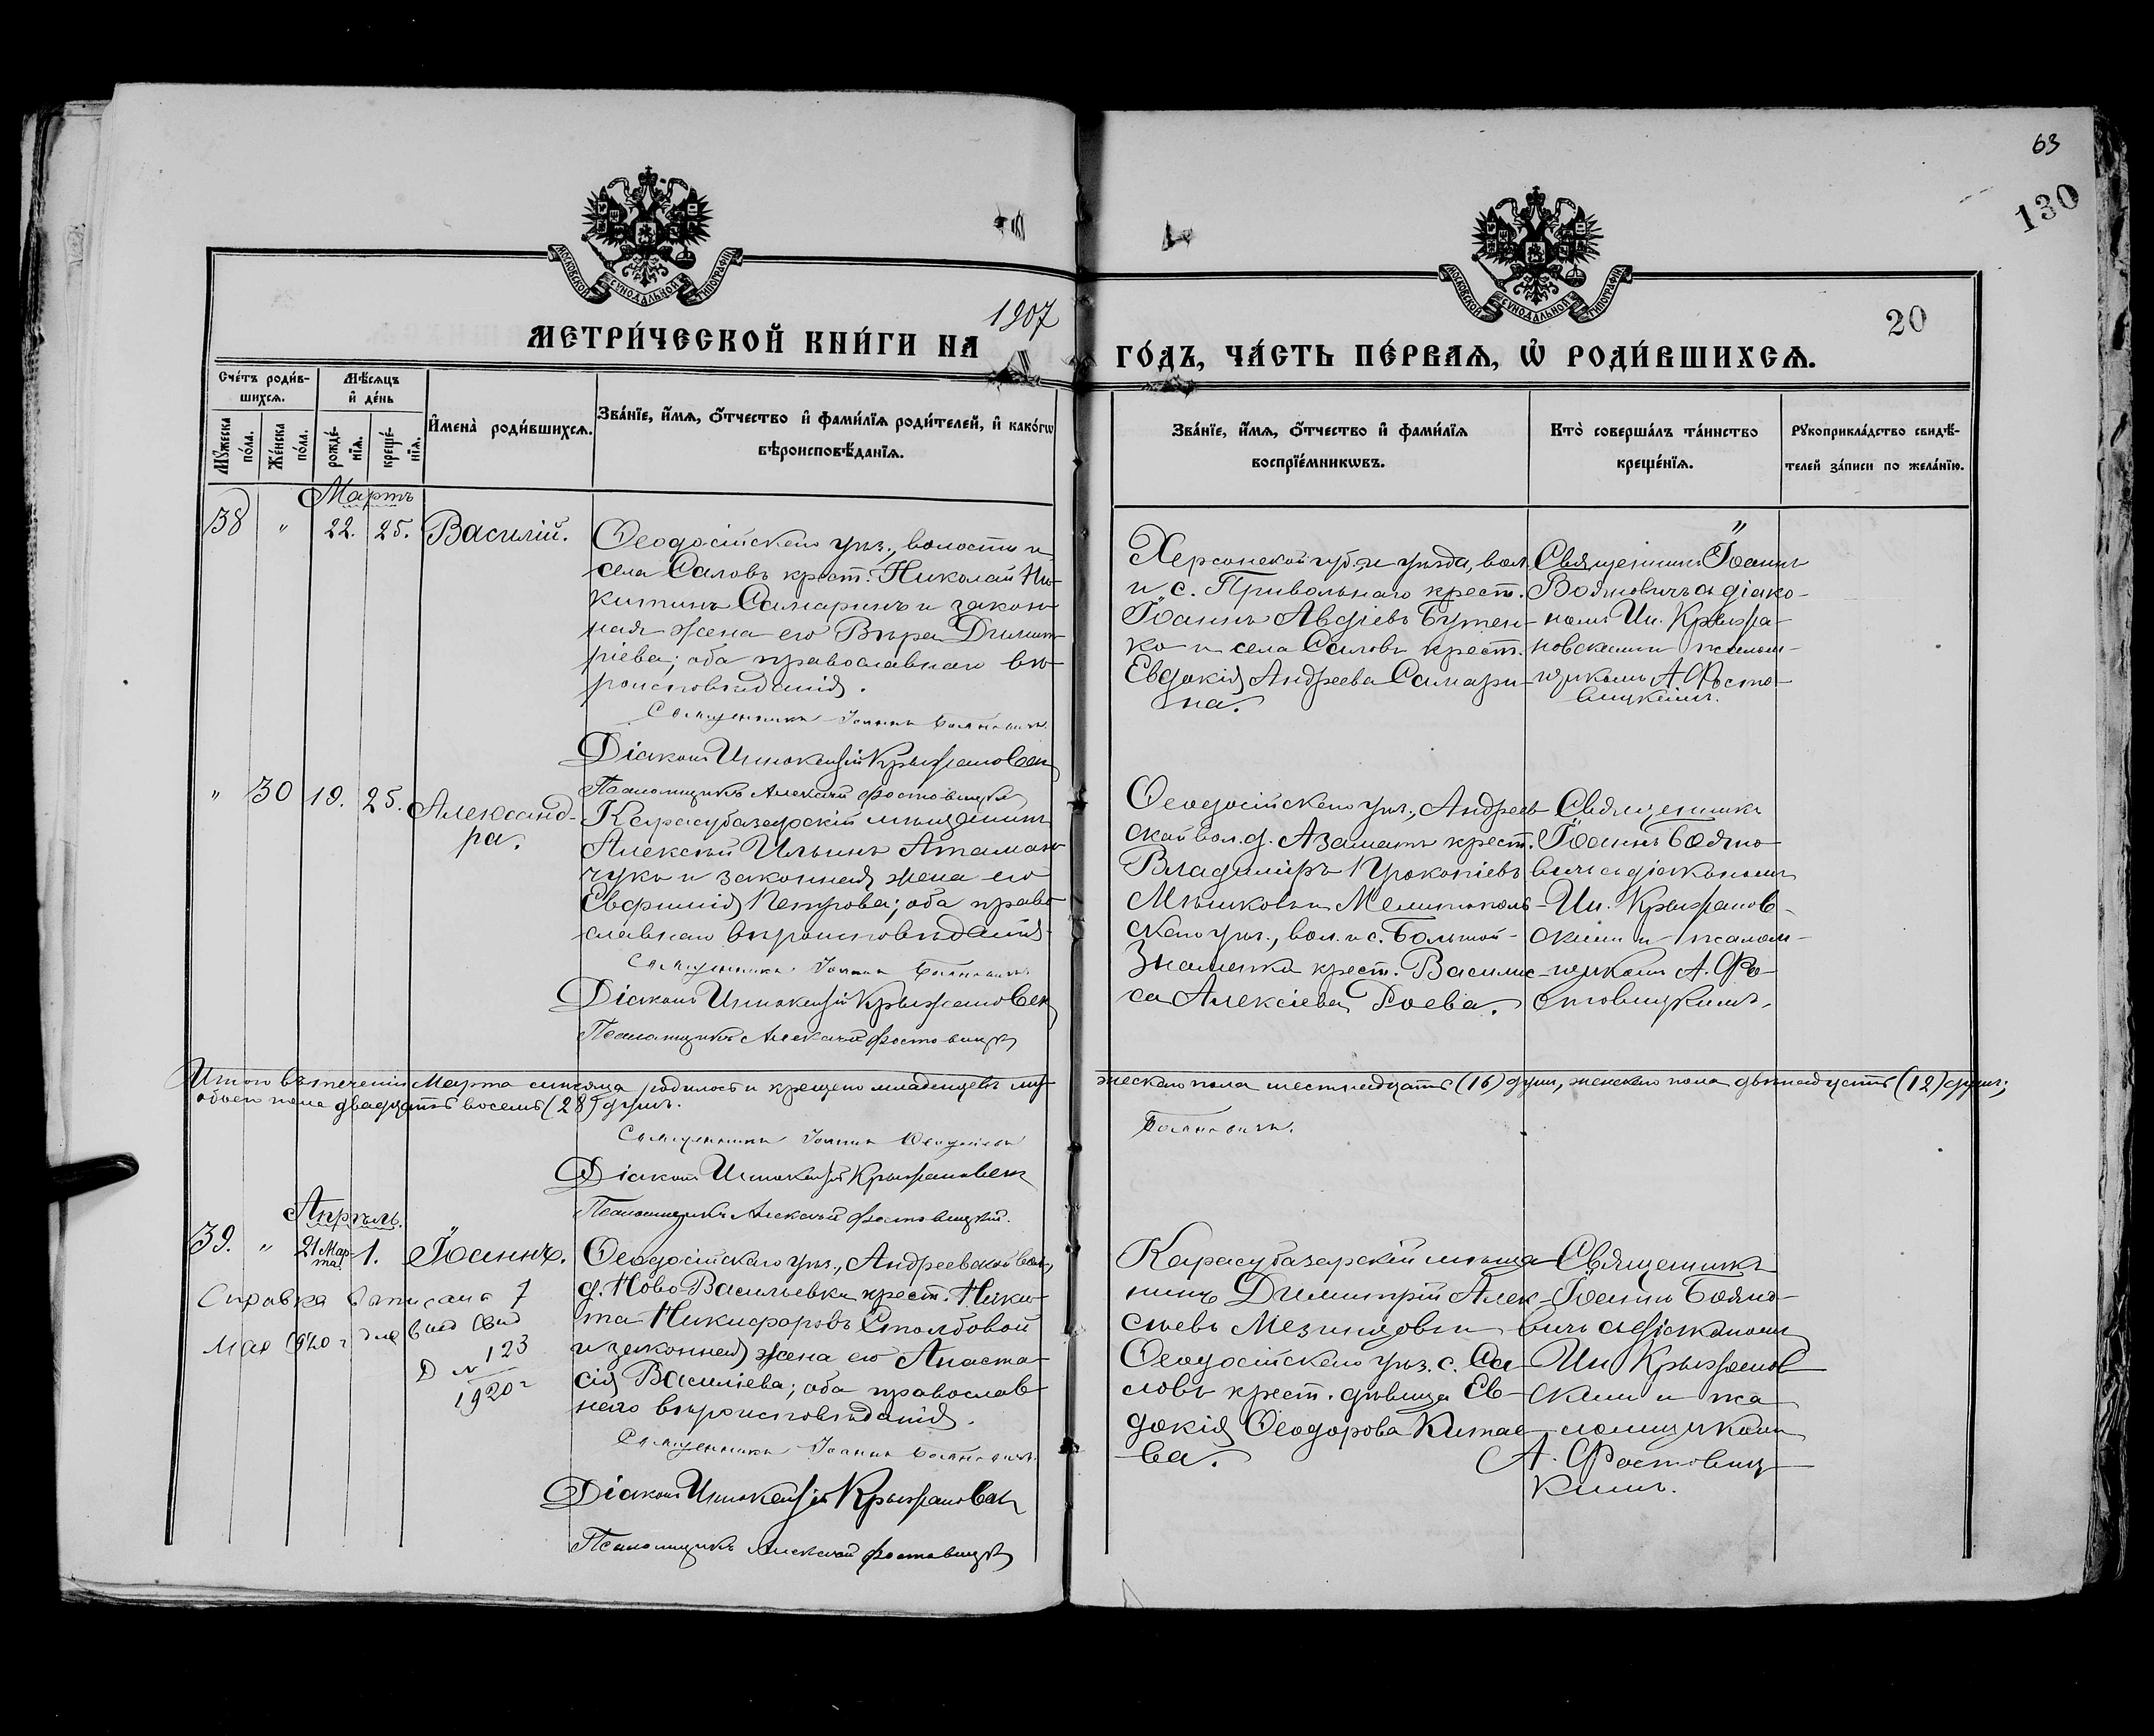 63
130
МОСКОВСКОЙ СѴНОДАЛЬНОЙ ТИПОГРАФІИ
МОСКОВСКОЙ СѴНОДАЛЬНОЙ ТИПОГРАФІИ
20
МЕТРИ́ЧЕСКОЙ КНИ́ГИ НА 1907 ГО́ДЪ, ЧА́СТЬ ПЕ́РВАѦ, Ѡ҆ РОДИ́ВШИХСѦ.
Сче́тъ роди́в-
шихсѧ.
Мꙋ́жеска
по́ла.
Же́нска
по́ла.
Мѣ́сѧцъ
и҆ де́нь
рожде́-
нїѧ.
креще́-
нїѧ.
И҆мена̀ роди́вшихсѧ.
Зва́нїе, и҆́мѧ, ѻ҆́тчество и҆ фами́лїѧ роди́телей, и҆ како́гѡ
вѣроисповѣ́данїѧ.
Зва́нїе, и҆́мѧ, ѻ҆́тчество и҆ фами́лїѧ
воспрїе́мникѡвъ.
Кто̀ соверша́лъ та́инство
креще́нїѧ.
Рꙋкоприкла́дство свидѣ́-
телей за́писи по жела́нїю.
Мартъ
38 " 22. 25. Василій.
Ѳеодосійскаго уѣз., волости и
села Саловъ крест. Николай Ни-
китинъ Самаринъ и закон-
ная жена его Вѣра Димит-
ріева; оба православнаго вѣ-
роисповѣданія.
Священникъ Іоаннъ Бояновичъ
Діаконъ Иннокентій Крыжановскій
Псаломщикъ Алексѣй Фостовицкій
Херсонской губ. и уѣзда, вол.
и с. Привольнаго крест.
Іоаннъ Авдіевъ Бутен-
ко и села Саловъ крест.
Евдокія Андреева Самари-
на.
Священникъ Іоаннъ
Бояновичъ съ діако-
номъ Ин. Крыжа-
новскимъ и псалом-
щикомъ А. Фосто-
вицкимъ.
" 30 19. 25. Александ-
ра.
Карасубазарскій мѣщанинъ
Алексѣй Ильинъ Атаман-
чукъ и законная жена его
Евфимія Петрова; оба право-
славнаго вѣроисповѣданія.
Священникъ Іоаннъ Бояновичъ
Діаконъ Иннокентій Крыжановскій
Псаломщикъ Алексѣй Фостовицкій
Ѳеодосійскаго уѣз., Андреев-
ской вол. д. Азаматъ крест.
Владиміръ Прокопіевъ
Мѣшковъ и Мелитополь-
скаго уѣз., вол. и с. Большой-
Знаменки крест. Василис-
са Алексіева Гоева.
Священникъ
Іоаннъ Бояно-
вичъ съ діакономъ
Ин. Крыжанов-
скимъ и псалом-
щикомъ А. Фо-
стовицкимъ.
Итого въ теченіи Марта мѣсяца родилось и крещено младенцевъ му-
жескаго пола шестнадцать (16) душъ, женскаго пола двѣнадцать (12) душъ;
обоего пола двадцать восемь (28) душъ.
Священникъ Іоаннъ Ѳеодосіевъ
Бояновичъ.
Діаконъ Иннокентій Крыжановскій
Псаломщикъ Алексѣй Фостовицкій.
Апрѣль.
39. " 21 Мар-
та 1. Іоаннъ.
Справка выписана 7
Мая 1920 г для
Д № 123
1920 г
Ѳеодосійскаго уѣз., Андреевской вол.,
д. Ново Васильевки крест. Ники-
та Никифоровъ Столбовой
и законная жена его Анаста-
сія Василіева; оба православ-
наго вѣроисповѣданія.
Священникъ Іоаннъ Бояновичъ
Діаконъ Иннокентій Крыжановскій
Псаломщикъ Алексѣй Фостовицкій
Карасубазарскій мѣща-
нинъ Димитрій Алек-
сѣевъ Мезинцовъ и
Ѳеодосійскаго уѣз. с. Са-
ловъ крест. дѣвица Ев-
докія Ѳеодорова Китае-
ва.
Священникъ
Іоаннъ Бояно-
вичъ съ діакономъ
Ин. Крыжанов-
скимъ и пса-
ломщикомъ
А. Фостовиц-
кимъ.